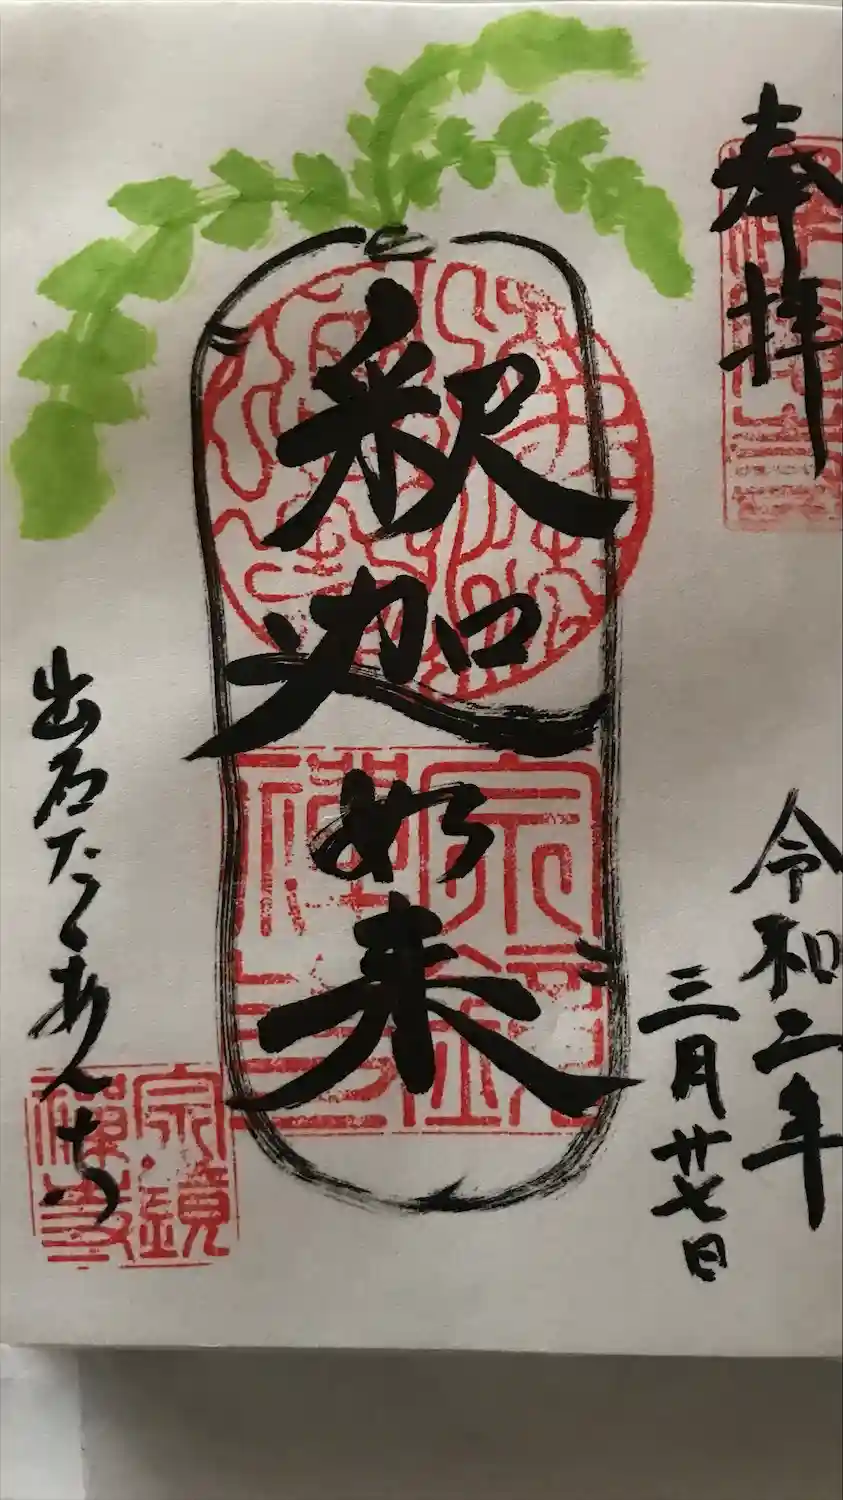 奉拝
令和二年
三月廿七日
釈迦如来
宗鏡
禪寺
出石たくあん寺
宗鏡
禪寺